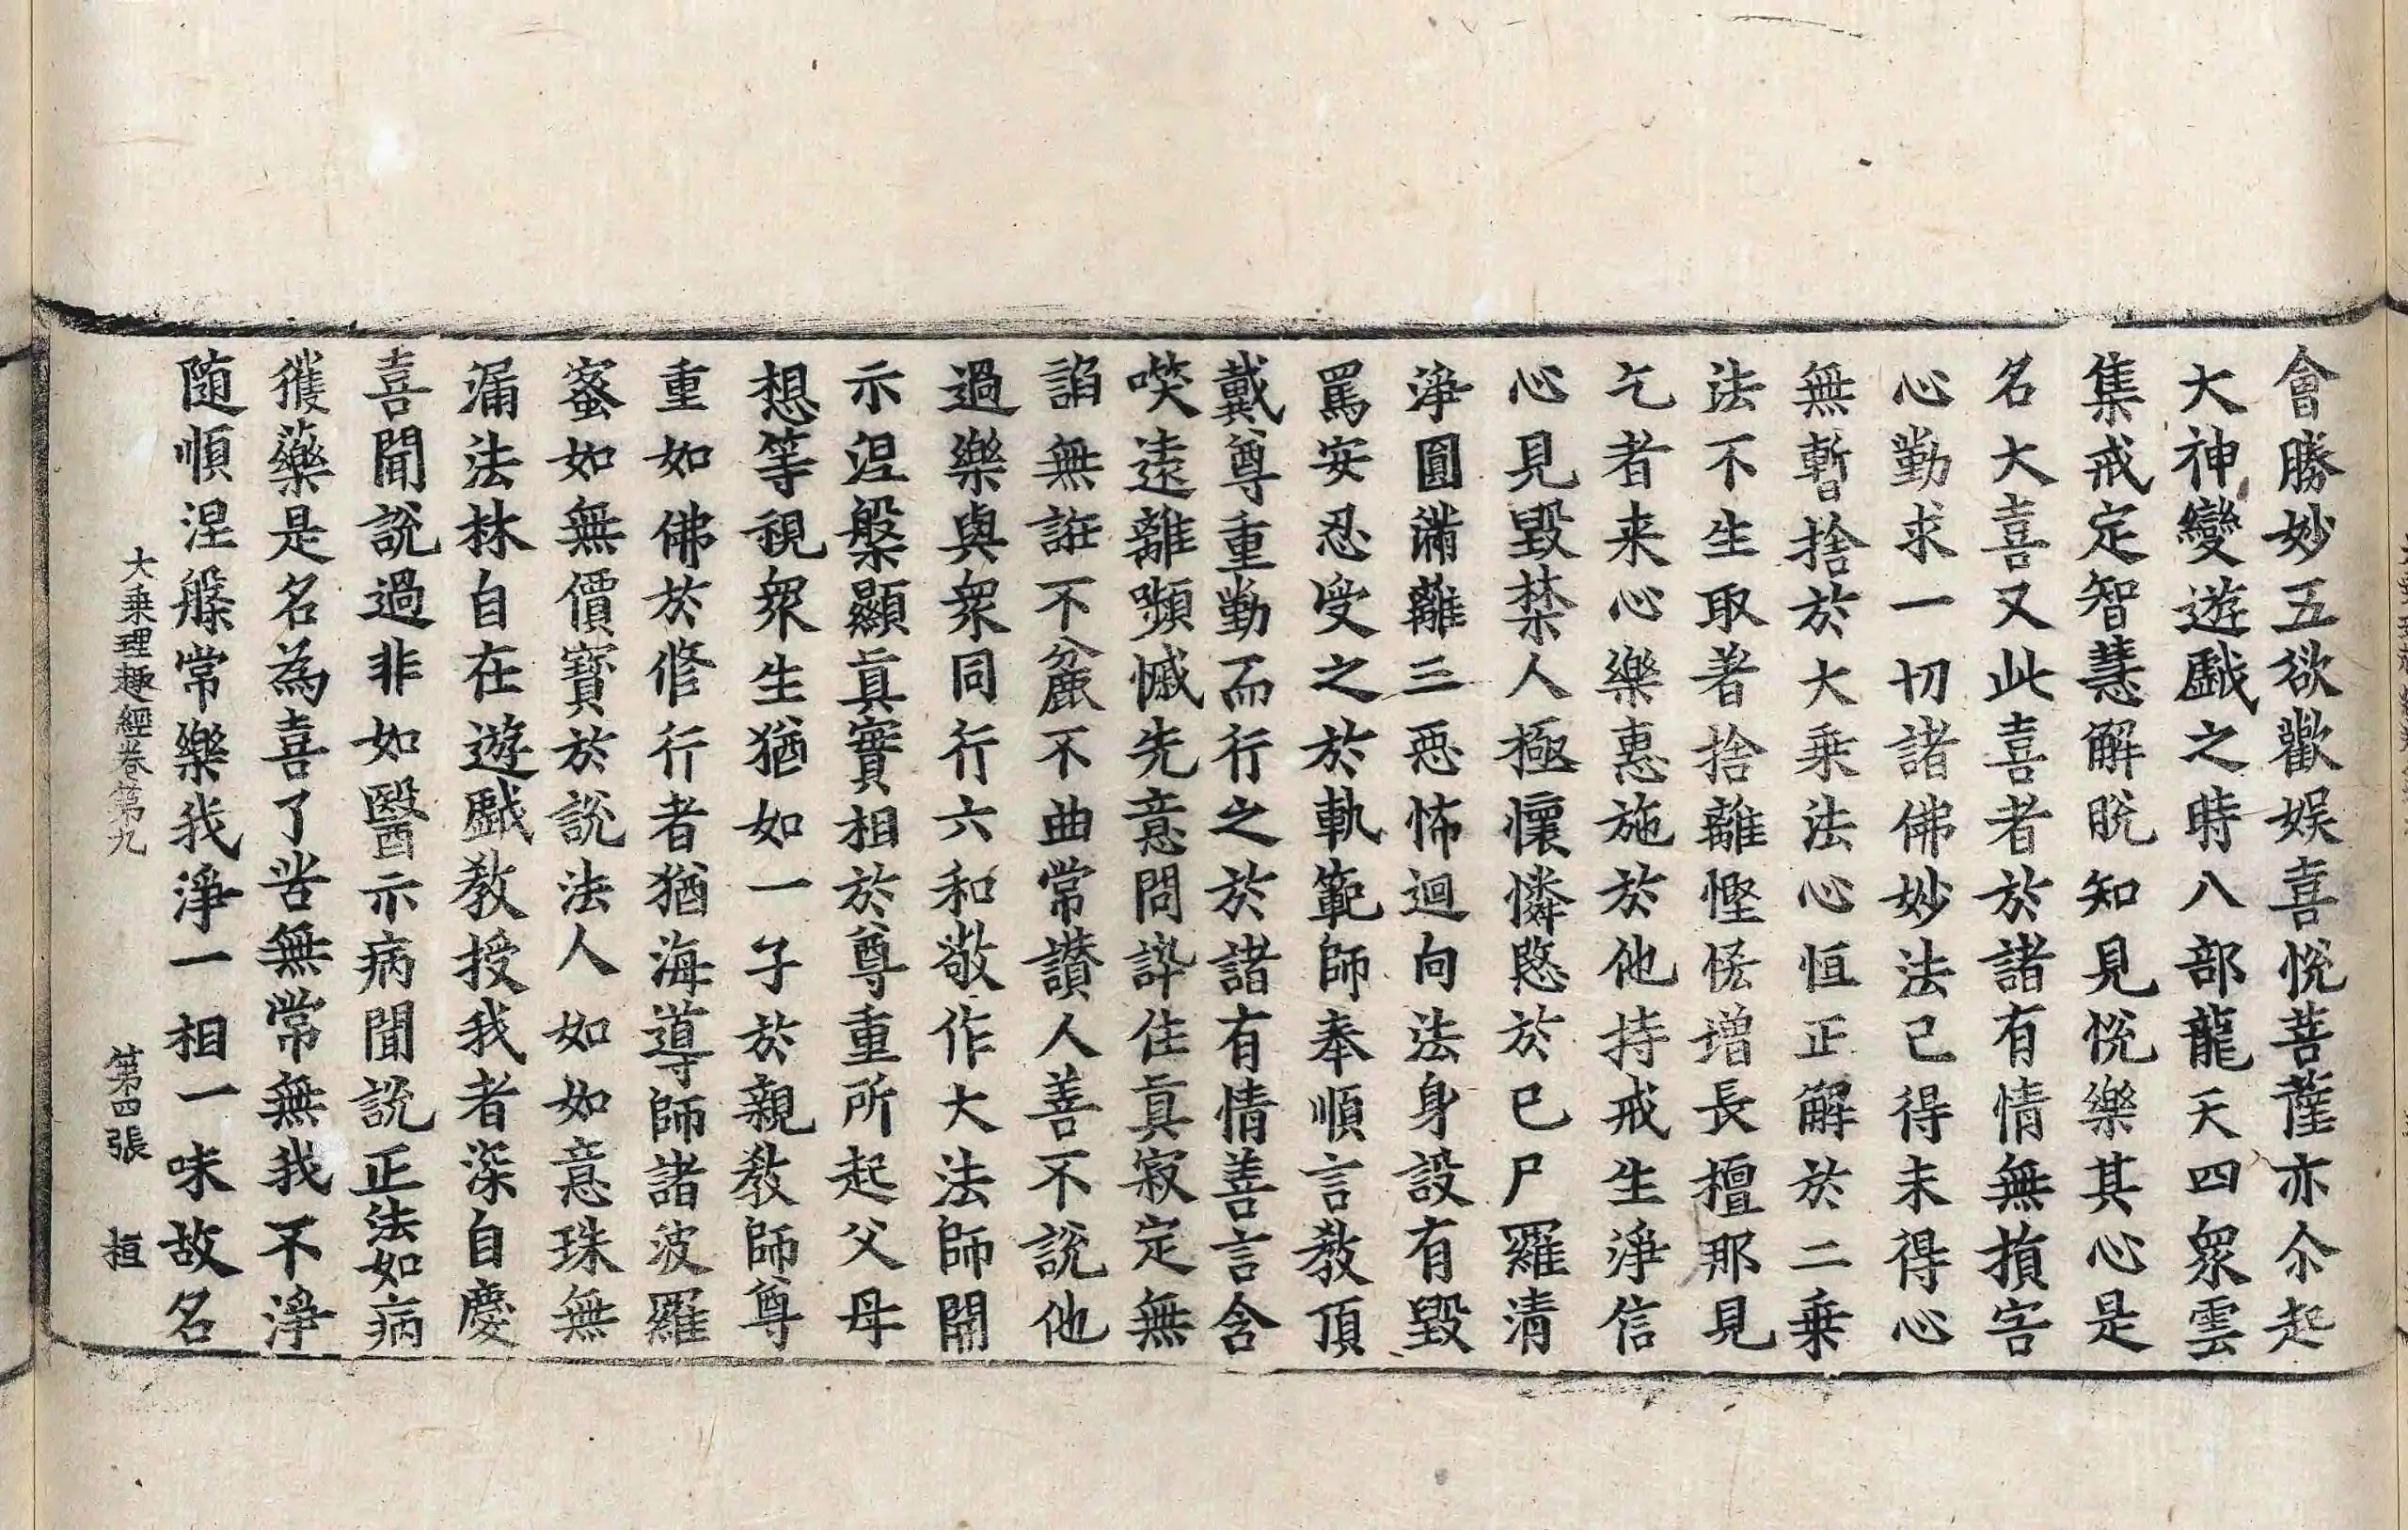 會勝妙五欲歡娛喜悅菩薩亦尒起
大神變遊戲之時八部龍天四衆雲
集戒定智慧解脫知見悅樂其心是
名大喜又此喜者於諸有情無損害
心勤求一切諸佛妙法已得未得心
無暫捨於大乗法心恒正解於二乗
法不生取著捨離慳悋增長檀那見
乞者来心樂惠施於他持戒生淨信
心見毀禁人極懷憐愍於已尸羅清
淨圓滿離三惡怖迴向法身設有毀
罵安忍受之於軌範師奉順言教頂
戴尊重勤而行之於諸有情善言含
唉遠離嚬慽先意問訊住眞寂定無
諂無誑不麁不曲常讚人善不說他
過樂與衆同行六和敬作大法師開
示涅槃顯眞實相於尊重所起父母
想等視衆生猶如一子於親教師尊
重如佛於修行者猶海導師諸波羅
蜜如無價寶於說法人如如意珠無
漏法林自在遊戲教授我者深自慶
喜聞說過非如醫示病聞說正法如病
獲藥是名為喜了苦無常無我不淨
随順涅槃常樂我淨一相一味故名
大乗理趣經卷第九 第四張 桓